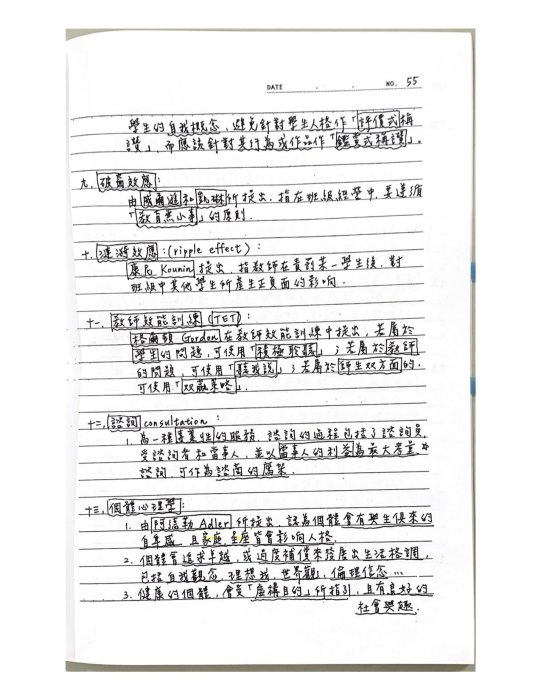 DATE . . NO. 55
學生的自我概念,避免針對學生人格作「評價式稱
讚」,而應該針對其行為或作品作「鑑賞式稱讚」。
九、破窗效應:
由威爾遜和凱琳所提出,指在班級經營中,要遵循
「教育無小事」的原則.
十、漣漪效應:(ripple effect):
康尼 Kounin 提出,指教師在責罰某一學生後,對
班級中其他學生所產生正負面的影響.
十一、教師效能訓練(TET):
格爾頓 Gordon 在教師效能訓練中提出,若屬於
學生的問題,可使用「積極聆聽」;若屬於教師
的問題,可使用「我訊」;若屬於師生双方面的.
可使用「双贏策略」.
十二、諮詢 consultation:
1. 為一種專業性的服務,諮詢的過程包括了諮詢員,
受諮詢者和當事人,並以當事人的利益為最大考量
諮詢,可作為諮商的
十三、個體心理學:
1. 由阿德勒 Adler 所提出,認為個體會有與生俱來的
自卑感,且家庭星座皆會影響人格.
2. 個體會追求卓越,或過度補償來發展出生活格調,
包括自我觀念,理想我,世界觀,倫理信念…
3. 健康的個體,會受「虛構目的」所指引,且有良好的
社會興趣.